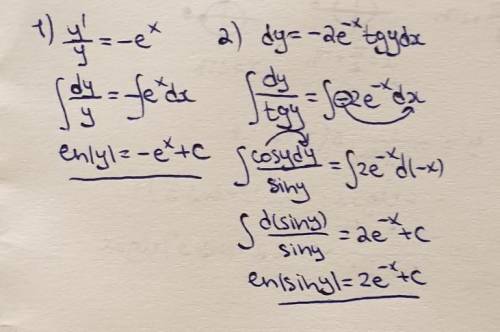 1) y'/y = -e^x
∫ dy/y = -∫ e^x dx
ln|y| = -e^x + C
2) dy = -2e^-x tgy dx
∫ dy/tgy = ∫ -2e^-x dx
∫ cosydy/siny = ∫ 2e^-x d(-x)
∫ d(siny)/siny = 2e^-x + C
ln|siny| = 2e^-x + C